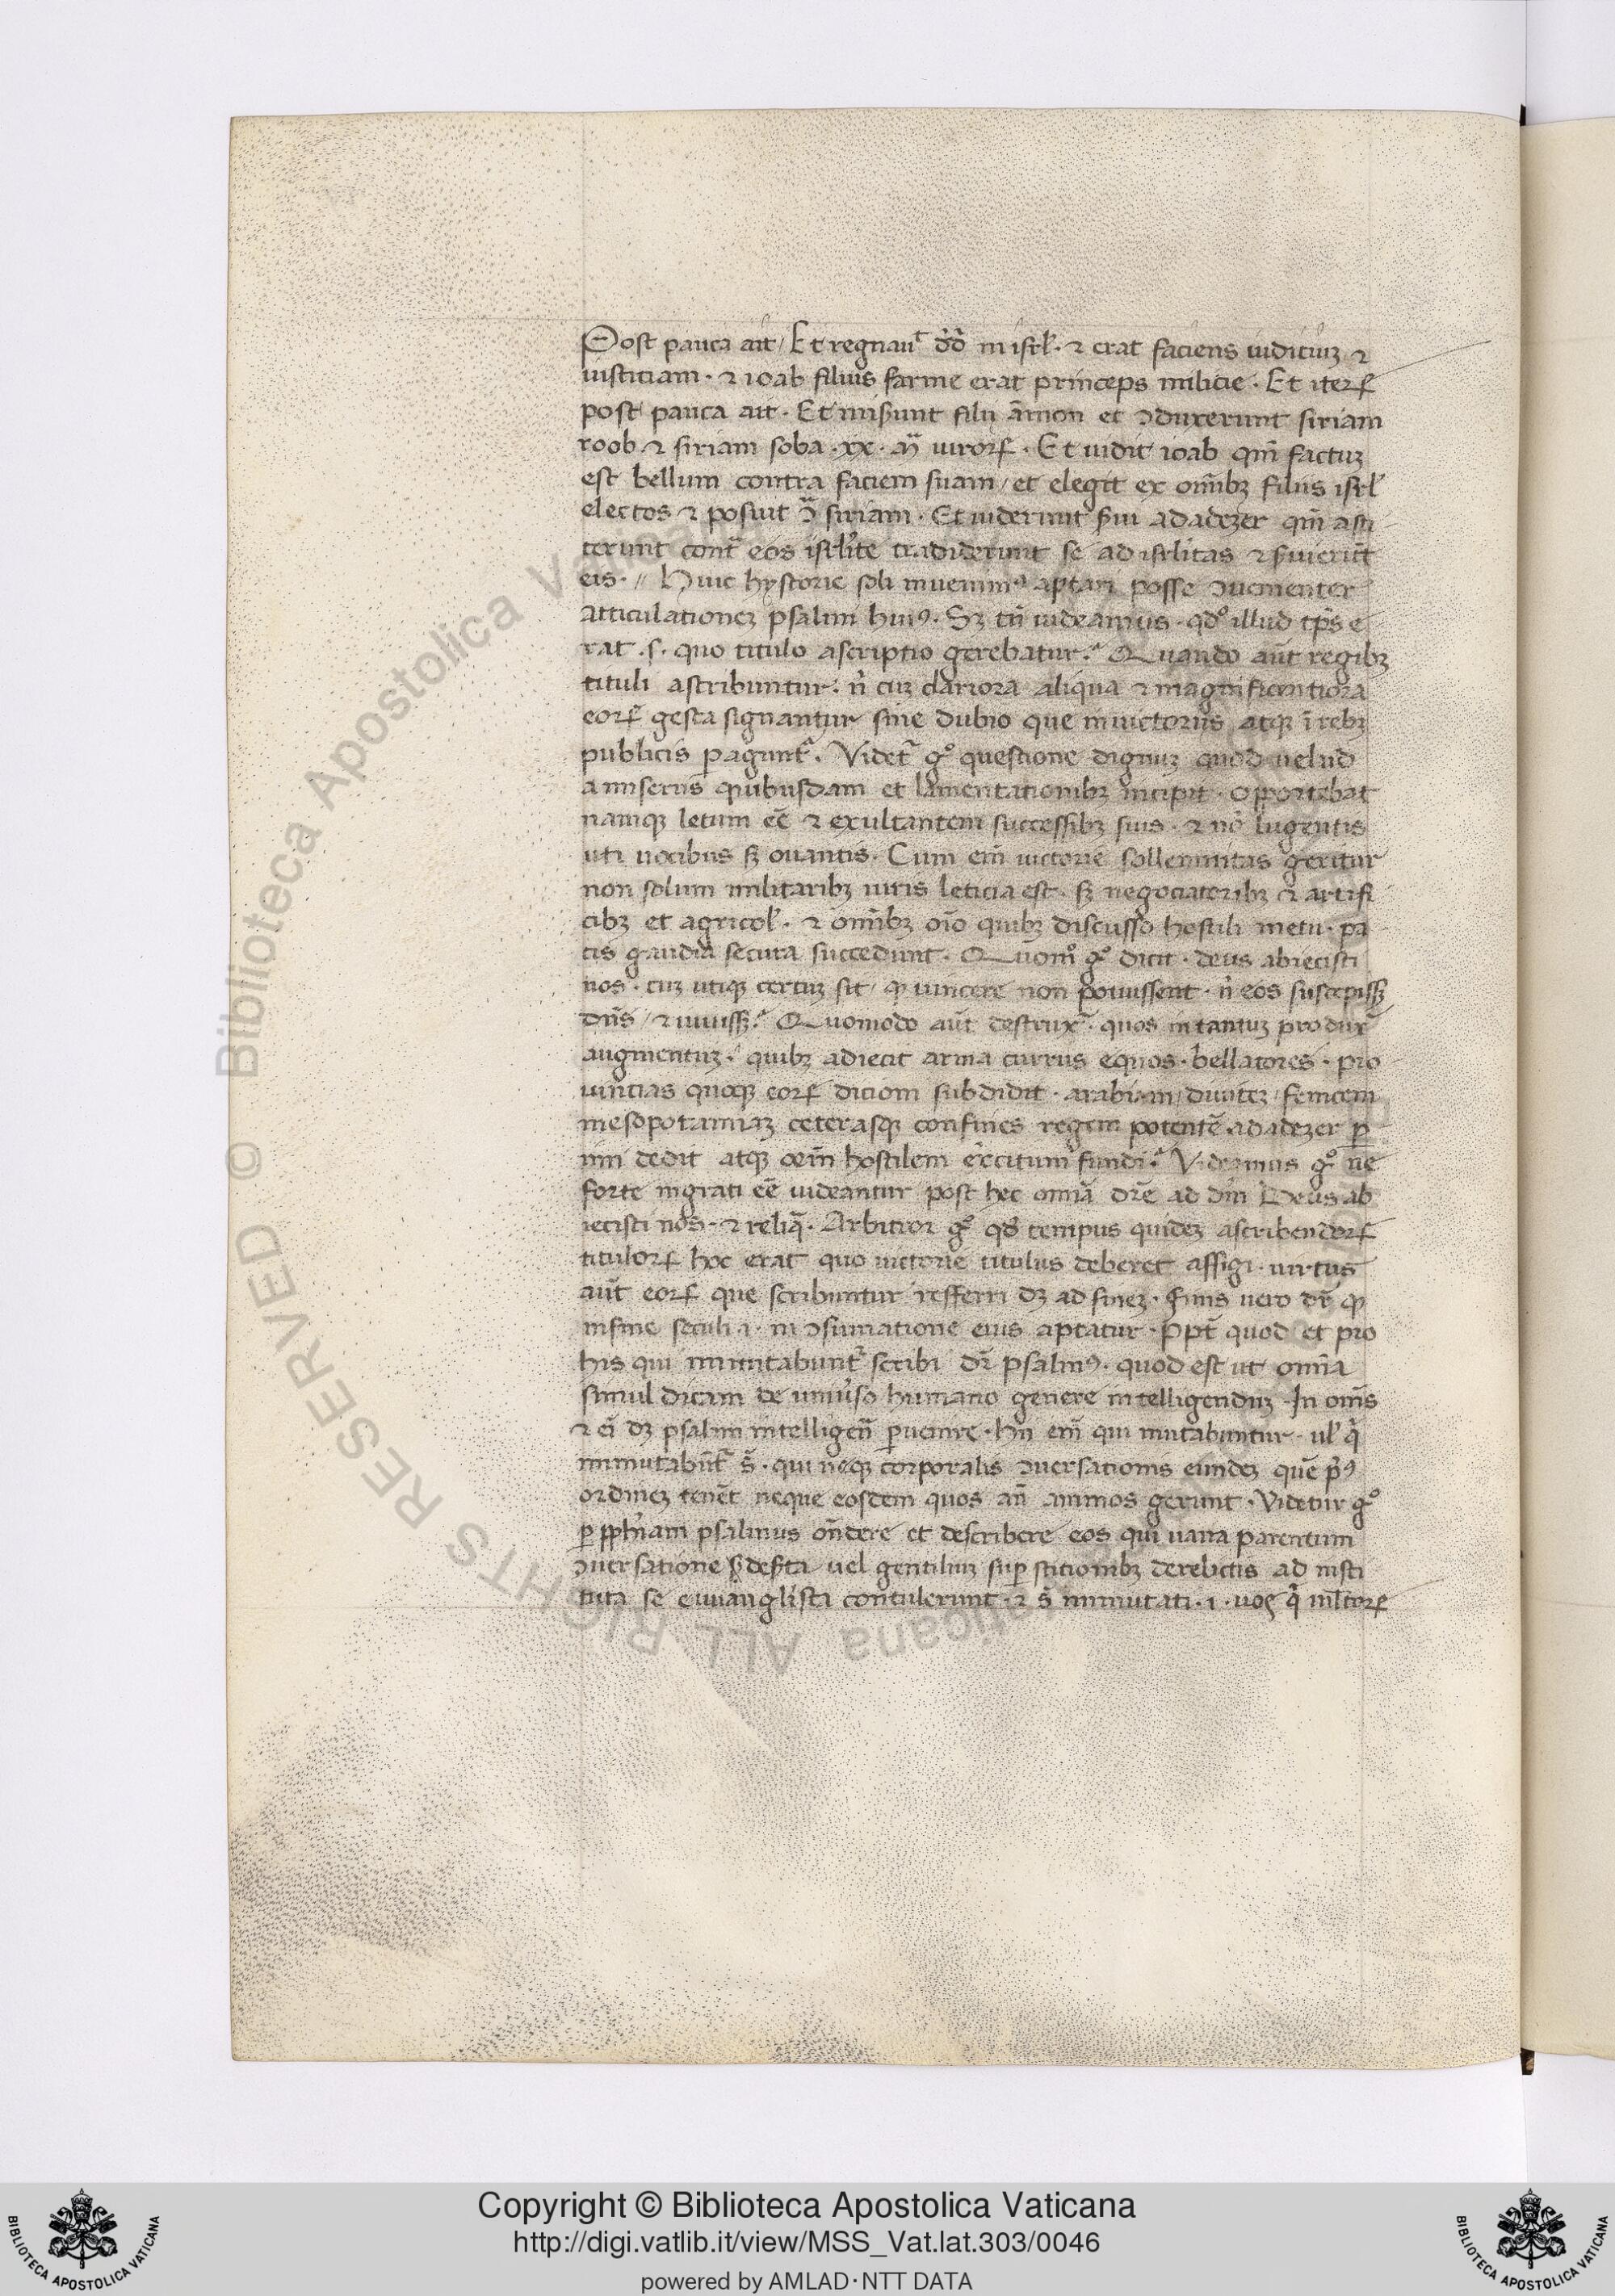 Post pauca ait / Et regnauͭ dd̄ in isrl̄ · ⁊ erat faciens iudiciuꝫ ⁊
iusticiam · ⁊ ioab filius saruie erat princeps milicie · Et iterꝝ
post pauca ait · Et mis̄unt filii āmon et ꝯduxerunt siriam
roob ⁊ siriam soba · xx · m̄ uirorꝝ · Et uidit ioab qm̄ factuꝫ
est bellum contra faciem suam / et elegit ex om̄ibꝫ filiis isrl̄
electos ⁊ posuit ꝯͣ siriam · Et uiderunt s̄ui adadezer qm̄ asti
terunt cont̄ eos isrlite tradiderunt se ad isrlitas ⁊ s̄uierūt
eis · // Huic hystorie soli inuenimꝰ aptari posse ꝯuenienter
attitulationeꝫ psalmi huiꝰ · Sꝫ tn̄ uideamus · qdͦ illud tp̄s e
rat · s · quo titulo ascriptio gerebatur · Quando aūt regibꝫ
tituli ascribuntur · n̄ cuꝫ clariora aliqua ⁊ magnificentiora
eorꝝ gesta signantur sine dubio que in uictoriis atqꝫ ī rebꝫ
publicis ꝑagunt᷑ · Videt᷑ gͦ questione dignuꝫ quod uelud
a miseriis quibusdam et lamentationibꝫ incipit · Opportebat
namqꝫ letum eē ⁊ exultantem successibꝫ suis · ⁊ nō lugentis
uti uocibus sꝫ ouantis · Cum em̄ uictorie sollennitas geritur
non solum militaribꝫ uiris leticia est · sꝫ negociatoribꝫ ⁊ artifi
cibꝫ et agricol̄ · ⁊ om̄ibꝫ oīo quibꝫ discusso hostili metu · pa
cis gaudia secura succedunt · Quomͦ gͦ dicit · deus abiecisti
nos · cuꝫ utiqꝫ certuꝫ sit / ꝙ uincere non potuissent · n̄ eos suscepissꝫ
dn̄s / ⁊ iuuissꝫ · Quomodo aūt destrux᷑ · quos in tantuꝫ produx᷑
augmentuꝫ · quibꝫ adiecit arma currus equos · bellatores · pro
uincias quoqꝫ eorꝝ dicioni subdidit · arabiam / diuiteꝫ / fenicem
mesopotamiaꝫ ceterasqꝫ confines regem potentē adadezer ꝑ
imi dedit atqꝫ oem̄ hostilem ex̄citum fundi · Videamus gͦ ne
forte ingrati eē uideantur post hec omnia dr̄e ad dm̄ Deus ab
iecisti nos · ⁊ reliq̄ · Arbitror gͦ qd̄ tempus quideꝫ ascribendorꝝ
titulorꝝ hoc erat quo uictorie titulus deberet affigi · uirtus
aūt eorꝝ que scribuntur refferri dꝫ ad fineꝫ · Finis uero dr̄ ꝙ
in fine seculi · i · in ꝯsumatione eius aptatur · ꝓpt̄ quod et pro
his qui immutabunt᷑ scribi dr̄ psalmꝰ · quod est ut omīa
simul dicam de uniuso humano genere intelligenduꝫ · In om̄s
⁊ ei dꝫ psalmi intelligen̄ ꝑuenire · Hii em̄ qui mutabuntur · ul̄ q̄
immutabūt᷑ s̄ · qui neqꝫ corporalis ꝯuersationis eundeꝫ quē pͥꝰ
ordineꝫ tenēt neque eosdem quos an̄ animos gerunt · Videtur gͦ
ꝑ ꝓph̄iam psalmus on̄dere et describere eos qui uana parentum
ꝯuersatione d̄es̄ta uel gentiliuꝫ suꝑstitionibꝫ derelictis ad insti
tuta se euuanglīsta contulerunt · ⁊ s̄ immutati · i · uoꝫ q̄ ml̄torꝝ
Copyright © Biblioteca Apostolica Vaticana
http://digi.vatlib.it/view/MSS_Vat.lat.303/0046
powered by AMLAD·NTT DATA